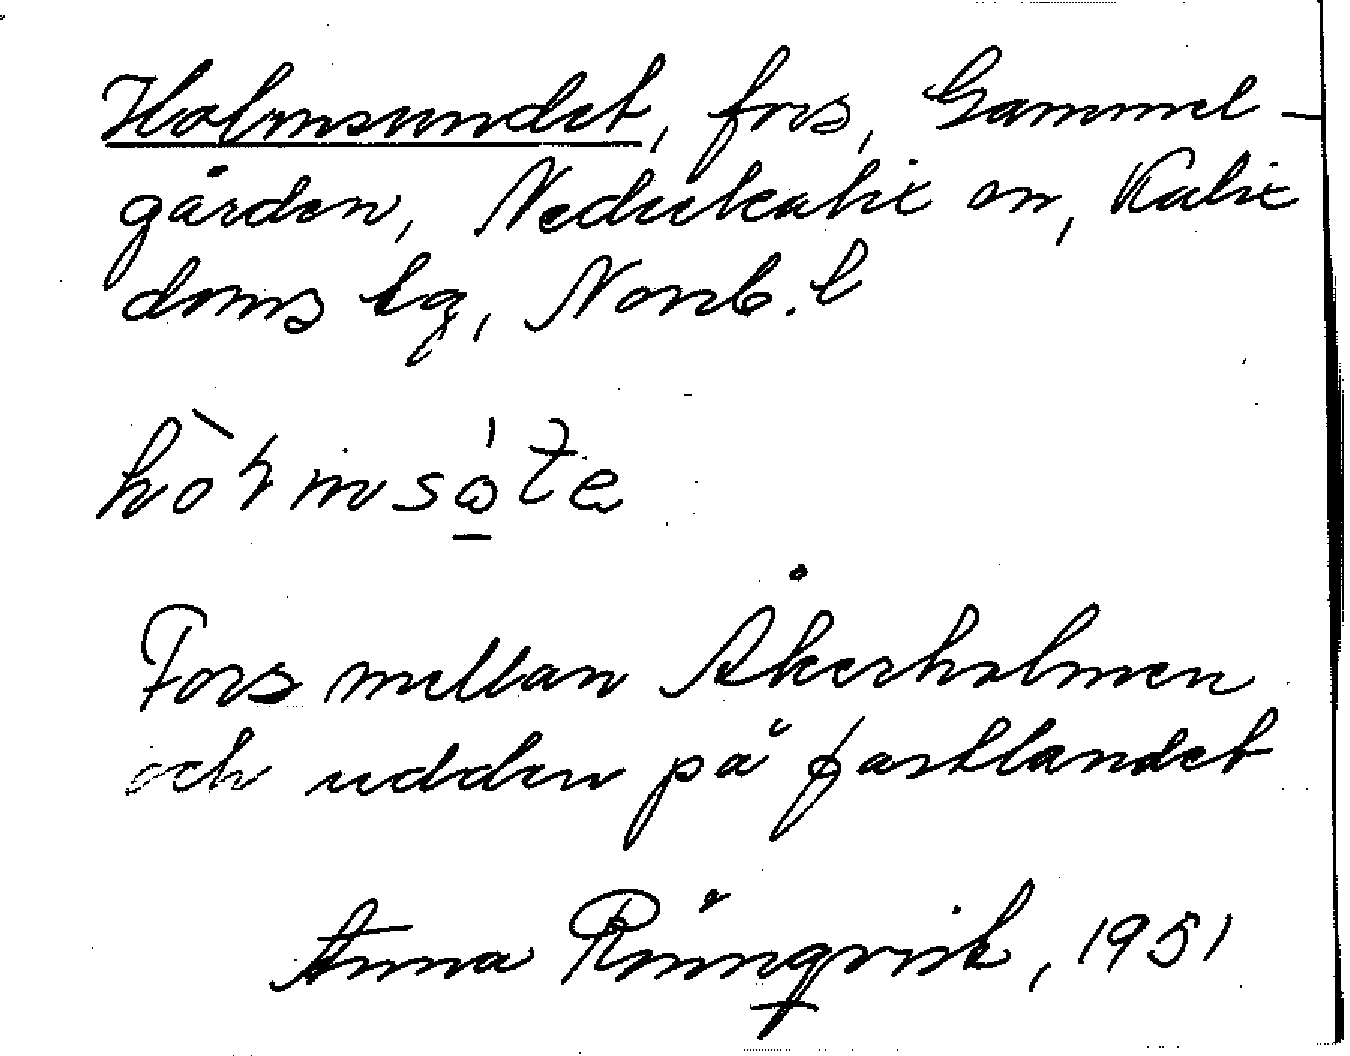 Holmsundet, fors, Gammel-
gården, Nederkalix sn, Kalix
doms lg, Norrb. l
Fors mellan Åkerholmen
och udden på fastlandet
Anna Rönnqvist, 1951